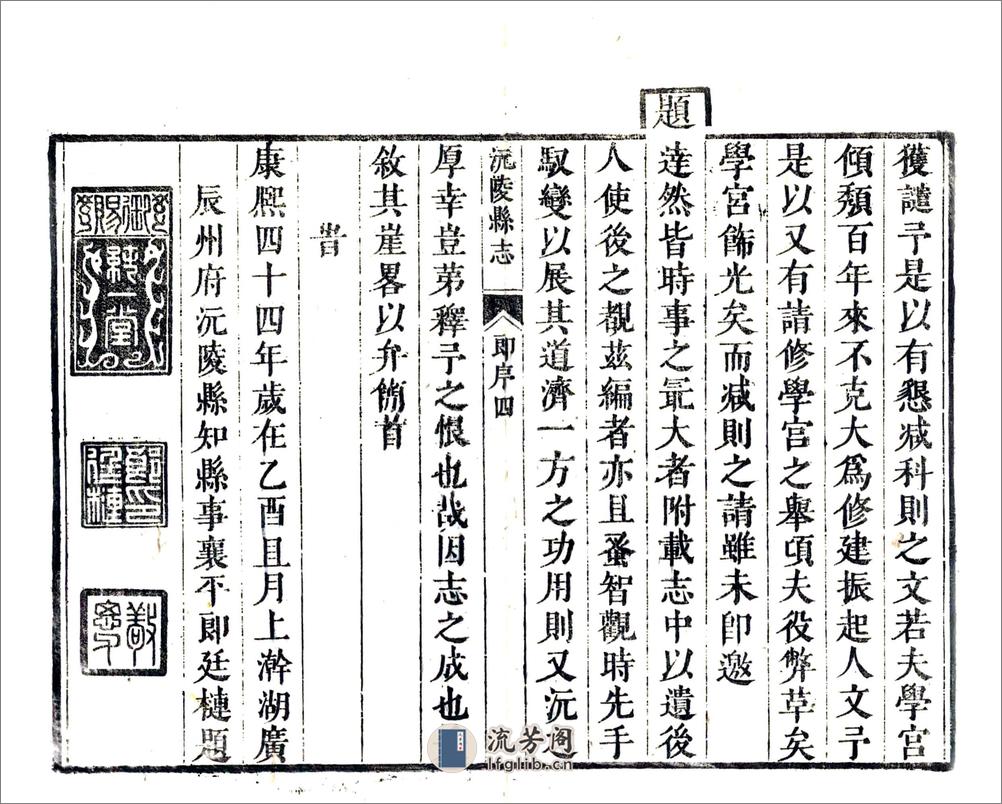 獲譴予是以有懇减科則之文若夫學宮
傾頽百年來不克大爲修建振起人文予
是以又有請修學宮之舉項夫役獘草矣
學宮飾光矣而减則之請雖未即邀
題
達然皆時事之最大者附載志中以遺後
人使後之覩茲編者亦且蚤智觀時先手
馭變以展其道濟一方之功用則又沅
沅陵縣志
郎序四
厚幸豈苐釋予之恨也哉因志之成也
敘其崖畧以弁簡首
旹
康熈四十四年歲在乙酉且月上澣湖廣
辰州府沅陵縣知縣事襄平郎廷槤題
流芳阁
lfglib.cn